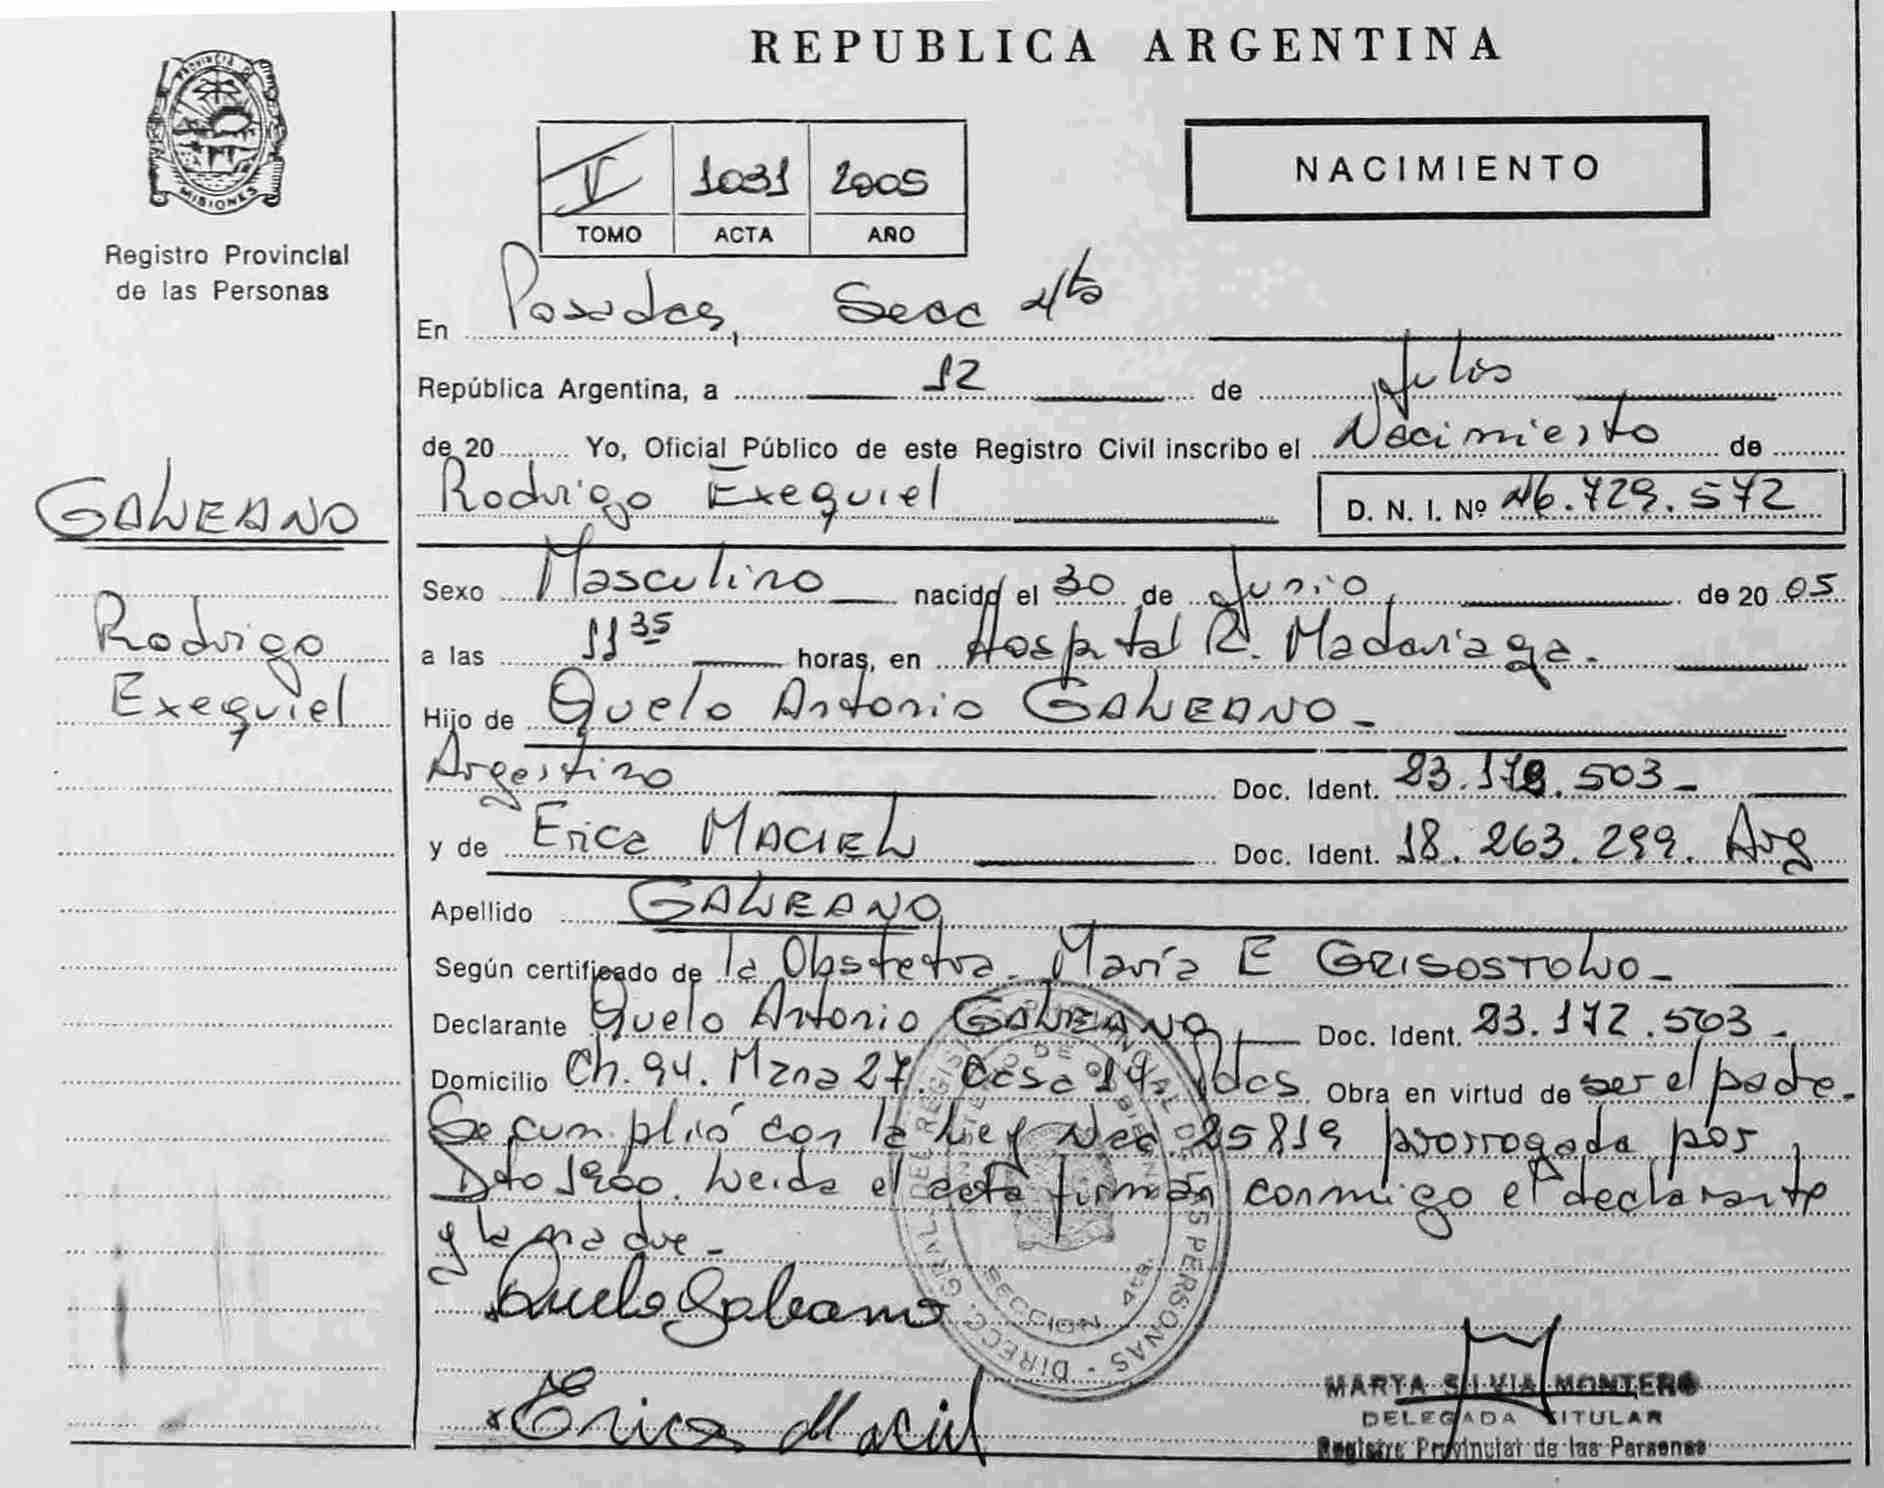 PROVINCIA DE
MISIONES
Registro Provincial
de las Personas
GALEANO
Rodrigo
Exequiel
REPUBLICA ARGENTINA
V 1031 2005
TOMO ACTA AÑO
NACIMIENTO
En Posadas, Secc 4ta
República Argentina, a 12 de Julio
de 20 Yo, Oficial Público de este Registro Civil inscribo el Nacimiento de
Rodrigo Exequiel D. N. I. Nº 46.729.572
Sexo Masculino nacido el 30 de Junio de 2005
a las 11 35 horas, en Hospital R. Madariaga.
Hijo de Quelo Antonio GALEANO -
Argentino Doc. Ident. 23.172.503 -
y de Erica MACIEL Doc. Ident. 18.263.299. Arg
Apellido GALEANO
Según certificado de la Obstetra. María E GRISOSTOLO -
Declarante Quelo Antonio GALEANO Doc. Ident. 23.172.503 -
Domicilio Ch. 94. Mzna 27. Casa 19. Pdas Obra en virtud de ser el padre.
Se cumplió con la Ley Nac. 25819 prorrogada por
Dto 1900. Leida el acta firman conmigo el declarante
y la madre -
Quelo Galeano
Erica Maciel
DIRECC. GRAL. DEL REGISTRO PROVINCIAL DE LAS PERSONAS
SECCION 4ta.
MARTA SILVIA MONTERO
DELEGADA TITULAR
Registro Provincial de las Personas